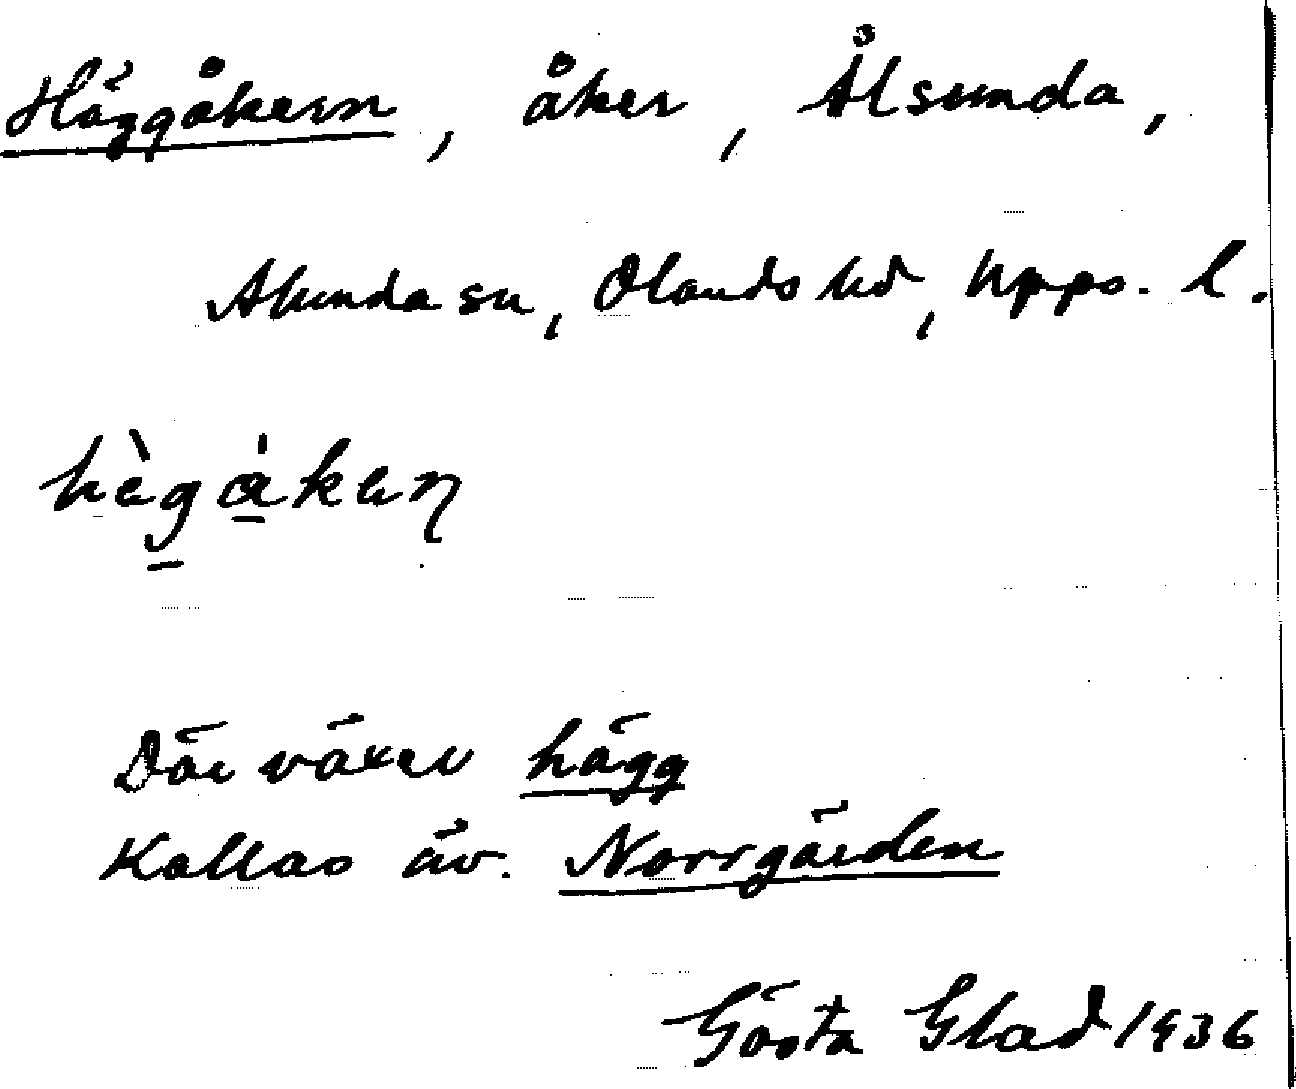 Häggåkern, åker, Ålsunda,
Alunda sn, Olands hd, Upps. l.
hègàkaɳ
Där växer hägg
Kallas äv. Norrgärden
Gösta Glad 1936